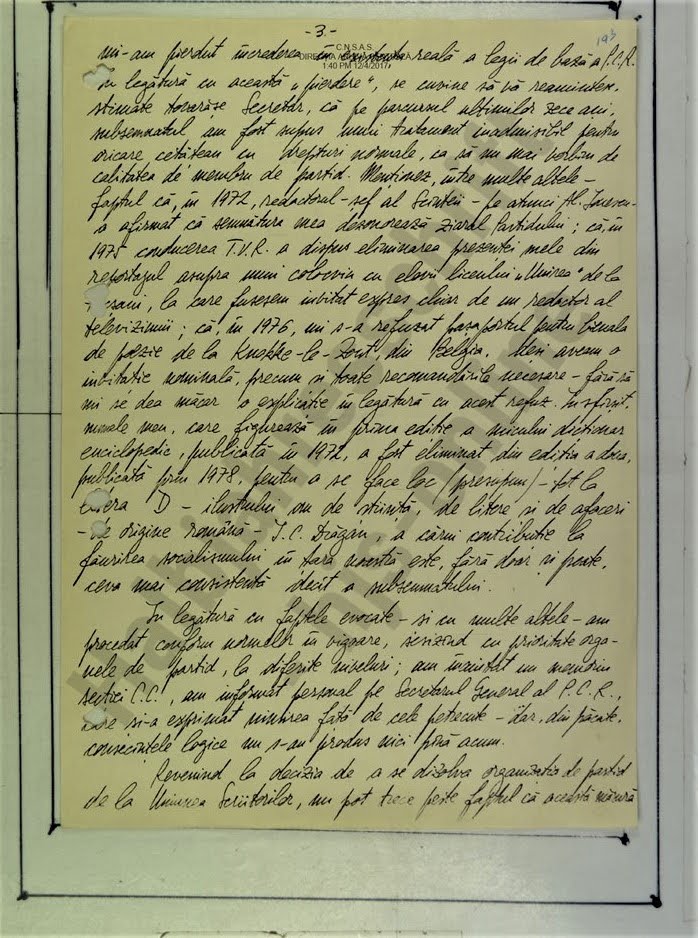 -3.-
193
C.N.S.A.S.
1:40 PM 12/4/2017
mi-am pierdut încrederea în existența reală a legii de bază a P.C.R.
În legătură cu această „pierdere", se cuvine să vă reamintesc,
stimate tovarășe Secretar, că pe parcursul ultimilor zece ani,
subsemnatul am fost supus unui tratament inadmisibil pentru
oricare cetățean cu drepturi normale, ca să nu mai vorbim de
calitatea de membru de partid. Menționez, între multe altele -
faptul că, în 1972, redactorul-șef al Scînteii - pe atunci Al.
a afirmat că semnătura mea dezonorează ziarul Partidului; că, în
1975 conducerea T.V.R. a dispus eliminarea prezenței mele din
reportajul asupra unui colocviu cu elevii liceului „Unirea" de la
la care fusesem invitat expres chiar de un redactor al
televiziunii; că, în 1976, mi s-a refuzat pașaportul pentru bienala
de poezie de la Knokke-le-Zout, din Belgia, deși aveam o
invitație nominală, precum și toate recomandările necesare - fără să
mi se dea măcar o explicație în legătură cu acest refuz. În sfîrșit,
numele meu, care figurează în prima ediție a micului dicționar
enciclopedic, publicată în 1972, a fost eliminat din ediția a doua,
publicată prin 1978, pentru a se face loc (presupun) - tot la
litera D - ilustrului om de știință, de litere și de afaceri
- de origine română - I.C. Drăgan, a cărui contribuție la
făurirea socialismului în țara noastră este, fără doar și poate,
ceva mai consistentă decît a subsemnatului.
În legătură cu faptele evocate - și cu multe altele - am
procedat conform normelor în vigoare, sesizînd cu prioritate orga-
nele de partid, la diferite niveluri; am înaintat un memoriu
secției C.C., am informat personal pe Secretarul General al P.C.R.,
care și-a exprimat uimirea față de cele petrecute - dar, din păcate,
consecințele logice nu s-au produs nici pînă acum.
Revenind la decizia de a se dizolva organizația de partid
de la Uniunea Scriitorilor, nu pot trece peste faptul că această măsură